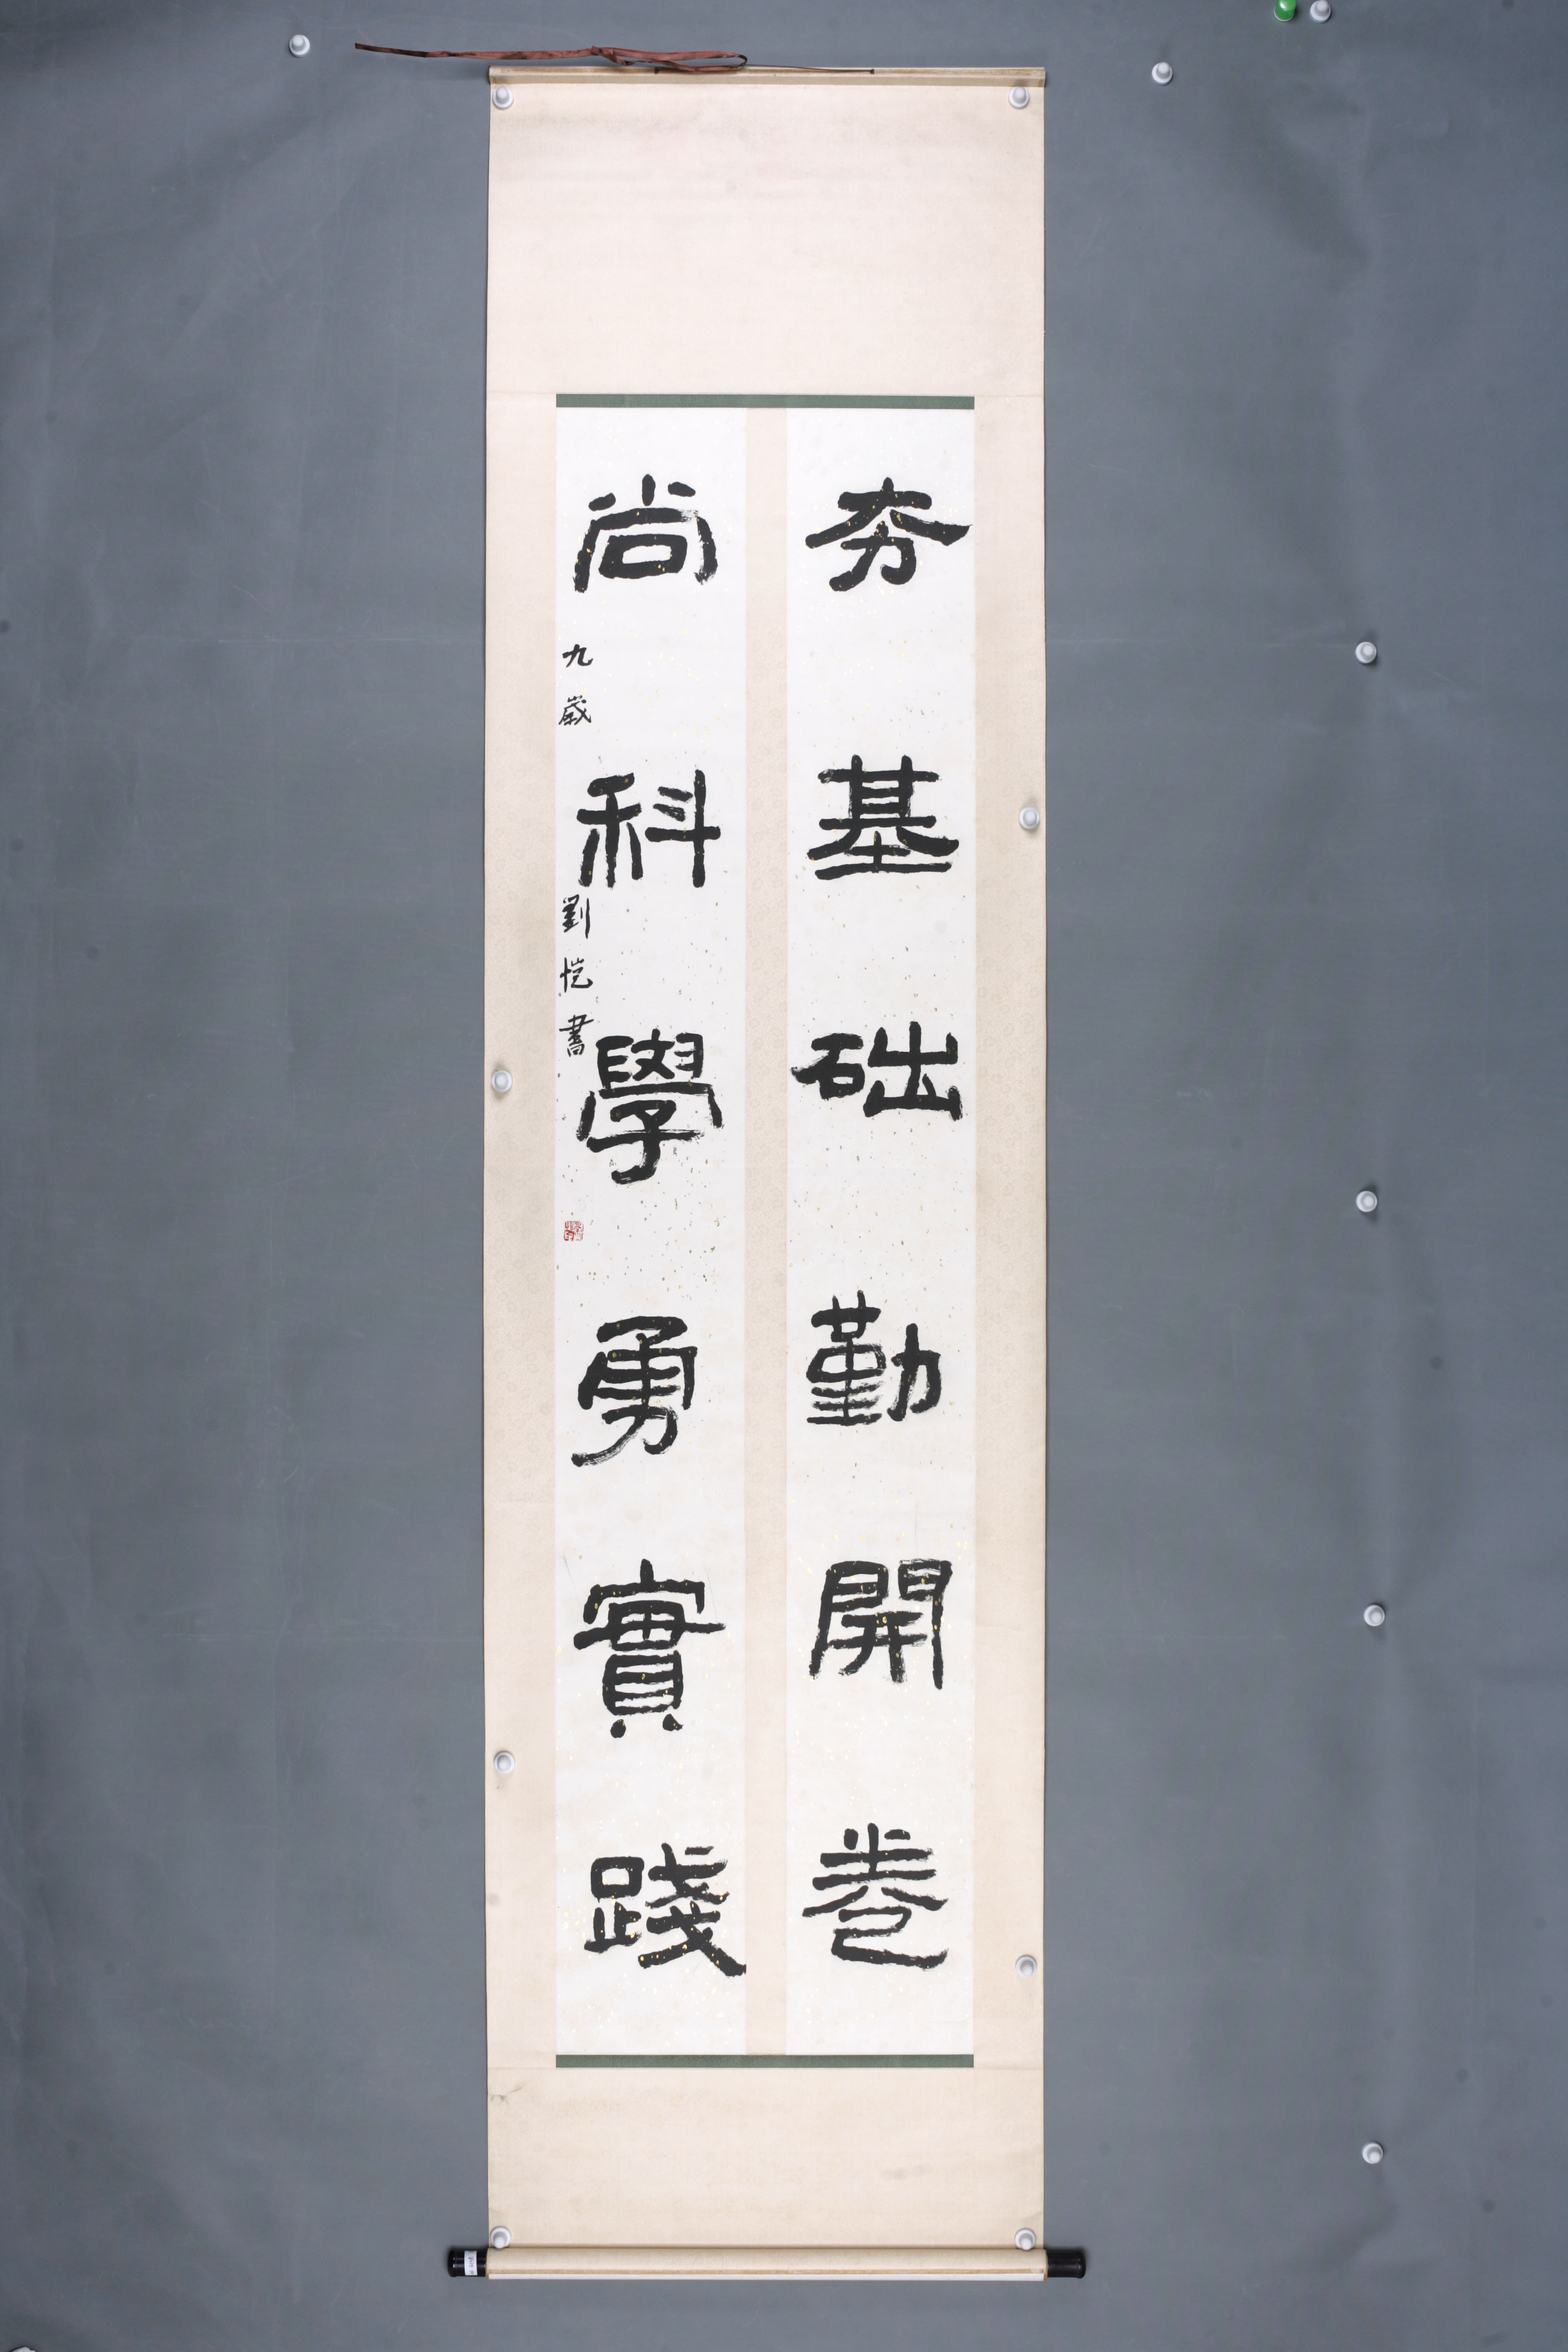 夯基础勤開卷
尚科學勇實踐
九歲
劉恺書